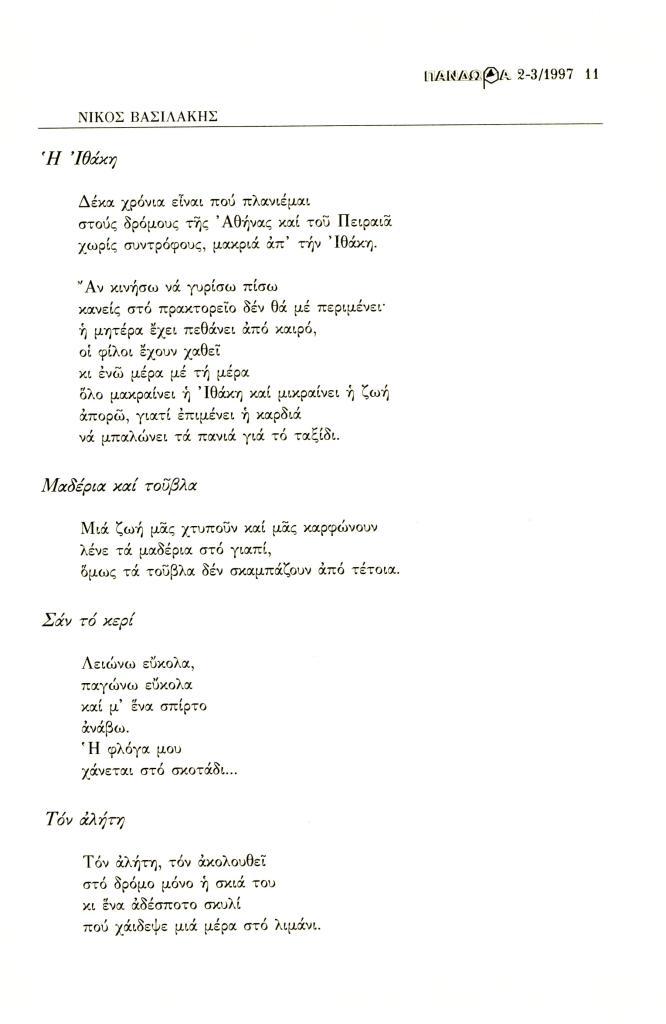 ΠΑΝΔΩΡΑ 2-3/1997 11
ΝΙΚΟΣ ΒΑΣΙΛΑΚΗΣ
Ἡ Ἰθάκη
Δέκα χρόνια εἶναι πού πλανιέμαι
στούς δρόμους τῆς Ἀθήνας καί τοῦ Πειραιᾶ
χωρίς συντρόφους, μακριά ἀπ' τήν Ἰθάκη.
Ἄν κινήσω νά γυρίσω πίσω
κανείς στό πρακτορεῖο δέν θά μέ περιμένει·
ἡ μητέρα ἔχει πεθάνει ἀπό καιρό,
οἱ φίλοι ἔχουν χαθεῖ
κι ἐνῶ μέρα μέ τή μέρα
ὅλο μακραίνει ἡ Ἰθάκη καί μικραίνει ἡ ζωή
ἀπορῶ, γιατί ἐπιμένει ἡ καρδιά
νά μπαλώνει τά πανιά γιά τό ταξίδι.
Μαδέρια καί τοῦβλα
Μιά ζωή μᾶς χτυποῦν καί μᾶς καρφώνουν
λένε τά μαδέρια στό γιαπί,
ὅμως τά τοῦβλα δέν σκαμπάζουν ἀπό τέτοια.
Σάν τό κερί
Λειώνω εὔκολα,
παγώνω εὔκολα
καί μ' ἕνα σπίρτο
ἀνάβω.
Ἡ φλόγα μου
χάνεται στό σκοτάδι...
Τόν ἀλήτη
Τόν ἀλήτη, τόν ἀκολουθεῖ
στό δρόμο μόνο ἡ σκιά του
κι ἕνα ἀδέσποτο σκυλί
πού χάιδεψε μιά μέρα στό λιμάνι.